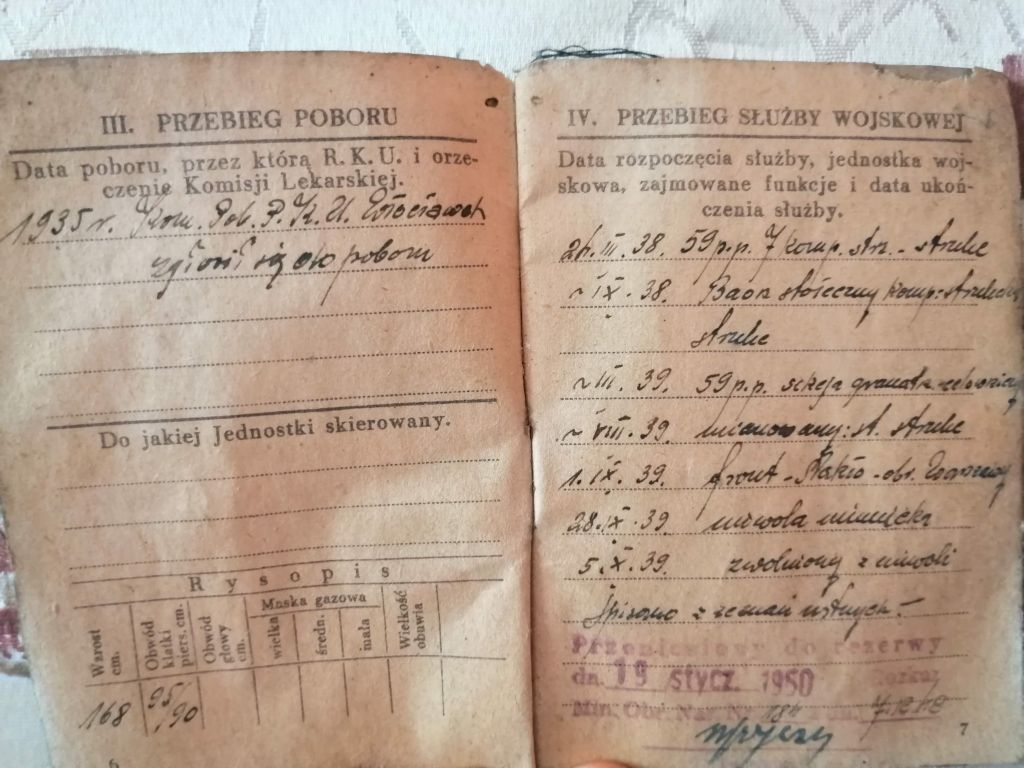 III. PRZEBIEG POBORU
Data poboru, przez którą R. K. U. i orze-
czenie Komisji Lekarskiej.
1935 r. Kom. Pob. P. K. U. Włocławek
zgłosił się do poboru
Do jakiej Jednostki skierowany.
Rysopis
Wzrost cm.
Obwód klatki piers. cm.
Obwód głowy cm.
Maska gazowa
wielka
średn.
mała
Wielkość obuwia
168
95/90
6
IV. PRZEBIEG SŁUŻBY WOJSKOWEJ
Data rozpoczęcia służby, jednostka woj-
skowa, zajmowane funkcje i data ukoń-
czenia służby.
III. 38. 59 p.p. 7 komp. strz. - strzelec
~ IX. 38. Baon stołeczny komp.
strzelec
~ III. 39. 59 p.p. sekcja granatn.
~ VIII. 39. mianowany: st. strzelec
1. IX. 39. front - Nakło - obr. Warszawy
28. IX. 39 niewola niemiecka
5. X. 39. zwolniony z niewoli
Spisano z zeznań ustnych -
Przeniesiony do rezerwy
dn. 19 stycz. 1950 Rozkaz
Min. Obr. Nar. Nr.
7